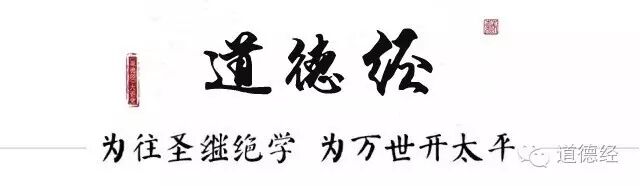 道德经
为往圣继绝学 为万世开太平
道德经